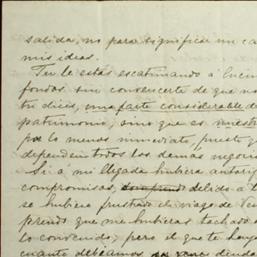 salida, no para significar un ca
mis ideas.
Tu le estás escatimando á Encin
fondos sin convencerte de que no
tu dices, una parte considerable d
patrimonio, sino que es nuestr
por lo menos inmediato, puesto q
dependen todos los demas negocio
Si á mi llegada hubiera autori
compromisos, debido á
se hubiera frustrado el viage de
prendo que me hubieras tachado
lo convenido; pero el que te haya
cuanto debiamos